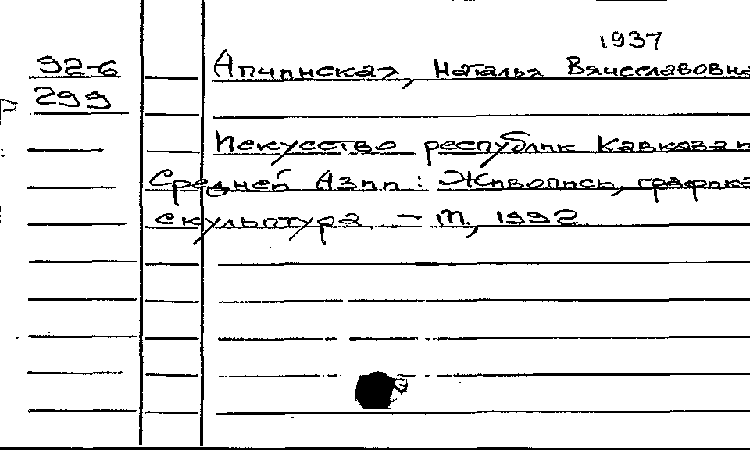 1937
92-6 Апчинская, Наталья Вячеславовна
299
Искусство республик Кавказа и
Средней Азии: Живопись, графика
скульптура. – М., 1992